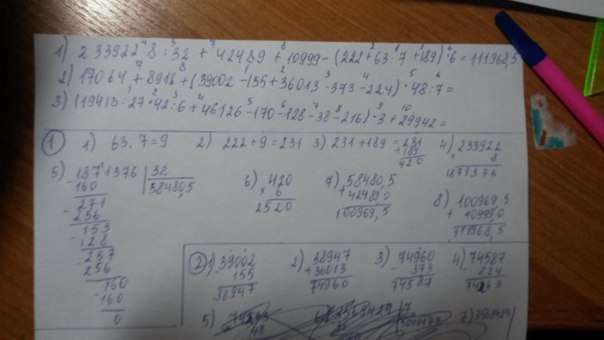 1) 233922 · 8 : 32 + 42489 + 10999 - (222 + 63 : 7 + 189) · 6 = 111968,5
2) 17064 + 8916 + (39002 - 155 + 36013 - 373 - 224) · 48 : 7 =
3) (119413 : 27 · 42 : 6 + 46126 - 170 - 128 - 38 - 216) · 3 + 29942 =
1) 1) 63 : 7 = 9 2) 222 + 9 = 231 3) 231 + 189 231 + 189 420 4) 233922 8 1871376
5) 1871376 32 58480,5 160 271 256 153 128 257 256 160 160 0
6) 420 × 6 2520 7) 58480,5 + 42489,0 100969,5 8) 100969,5 + 10999,0 111968,5
2) 1) 39002 155 38947 2) 38947 + 36013 74960 3) 74960 - 373 74587 4) 74587 - 224 74263
5)